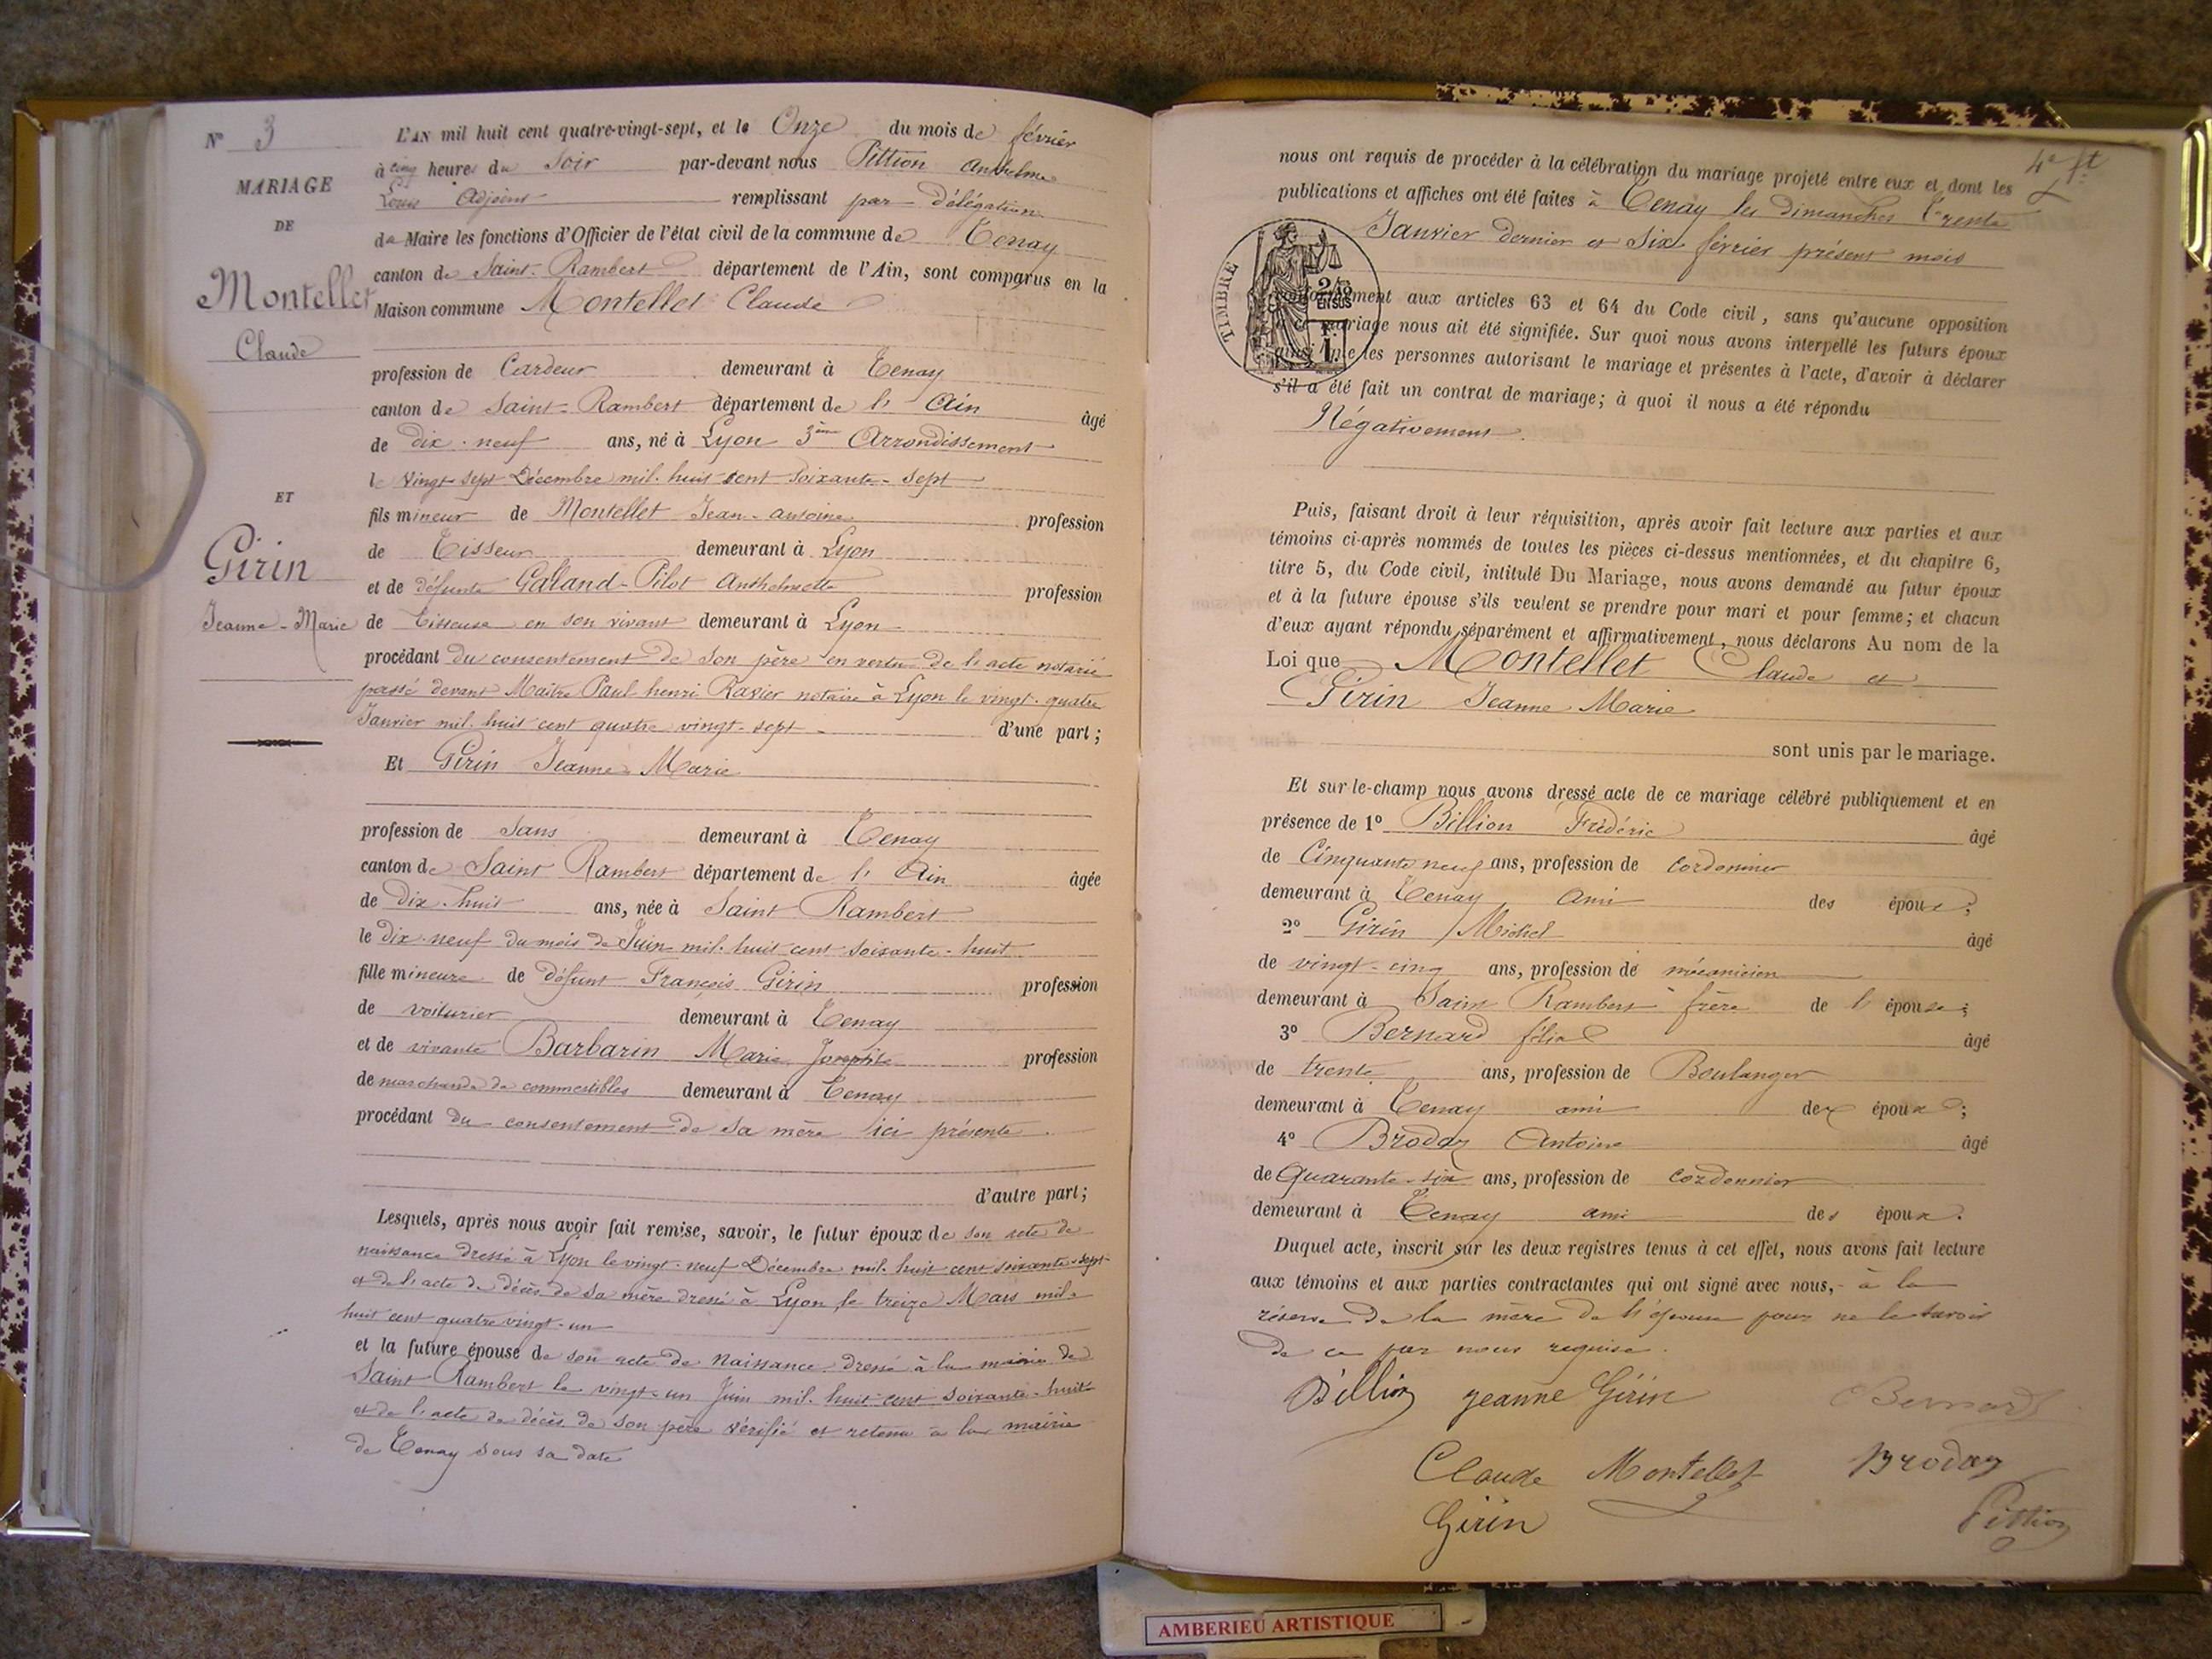 N° 3
MARIAGE
DE
Montellet
Claude
ET
Girin
Jeanne-Marie
L'AN mil huit cent quatre-vingt-sept, et le Onze du mois de février
à cinq heures du Soir par-devant nous Pittion Anthelme
Louis Adjoint remplissant par délégation
du Maire les fonctions d'Officier de l'état civil de la commune de Tenay
canton de Saint-Rambert département de l'Ain, sont comparus en la
Maison commune Montellet Claude
profession de Cardeur demeurant à Tenay
canton de Saint-Rambert département de l' Ain âgé
de dix-neuf ans, né à Lyon 3ème Arrondissement
le Vingt-sept Décembre mil-huit cent soixante-sept
fils mineur de Montellet Jean-antoine profession
de Tisseur demeurant à Lyon
et de défunte Galand-Pilot Anthelmette profession
de Tisseuse en son vivant demeurant à Lyon
procédant du consentement de son père en vertu de l'acte notarié
passé devant Maître Paul henri Ravier notaire à Lyon le vingt-quatre
Janvier mil-huit cent quatre vingt-sept d'une part;
Et Girin Jeanne Marie
profession de Sans demeurant à Tenay
canton de Saint Rambert département de l' Ain âgée
de Dix-huit ans, née à Saint Rambert
le dix-neuf du mois de Juin mil-huit cent soixante-huit
fille mineure de défunt François Girin profession
de voiturier demeurant à Tenay
et de vivante Barbarin Marie Josephte profession
de marchande de commestibles demeurant à Tenay
procédant du consentement de sa mère ici présente
d'autre part;
Lesquels, après nous avoir fait remise, savoir, le futur époux de son acte de
naissance dressé à Lyon le vingt-neuf Décembre mil-huit cent soixante-sept
et de l'acte de décès de sa mère dressé à Lyon le treize Mars mil-
huit cent quatre vingt-un
et la future épouse de son acte de Naissance dressé à la mairie de
Saint Rambert le vingt-un Juin mil-huit cent soixante-huit
et de l'acte de décès de son père vérifié et retenu à la mairie
de Tenay sous sa date
4e ft
nous ont requis de procéder à la célébration du mariage projeté entre eux et dont les
publications et affiches ont été faites à Tenay les dimanches trente
Janvier dernier et Six février présent mois
TIMBRE
2/10
EN SUS
1 F.
conformément aux articles 63 et 64 du Code civil, sans qu'aucune opposition
à ce mariage nous ait été signifiée. Sur quoi nous avons interpellé les futurs époux
ainsi que les personnes autorisant le mariage et présentes à l'acte, d'avoir à déclarer
s'il a été fait un contrat de mariage; à quoi il nous a été répondu
Négativement.
Puis, faisant droit à leur réquisition, après avoir fait lecture aux parties et aux
témoins ci-après nommés de toutes les pièces ci-dessus mentionnées, et du chapitre 6,
titre 5, du Code civil, intitulé Du Mariage, nous avons demandé au futur époux
et à la future épouse s'ils veulent se prendre pour mari et pour femme; et chacun
d'eux ayant répondu séparément et affirmativement, nous déclarons Au nom de la
Loi que Montellet Claude et
Girin Jeanne Marie
sont unis par le mariage.
Et sur-le-champ nous avons dressé acte de ce mariage célébré publiquement et en
présence de 1° Billion Frédéric âgé
de Cinquante neuf ans, profession de cordonnier
demeurant à Tenay Ami des époux;
2° Girin Michel âgé
de vingt-cinq ans, profession de mécanicien
demeurant à Saint Rambert frère de l' épouse;
3° Bernard félix âgé
de trente ans, profession de Boulanger
demeurant à Tenay ami des époux;
4° Broday Antoine âgé
de Quarante-six ans, profession de cordonnier
demeurant à Tenay ami des époux.
Duquel acte, inscrit sur les deux registres tenus à cet effet, nous avons fait lecture
aux témoins et aux parties contractantes qui ont signé avec nous, à la
réserve de la mère de l'épouse pour ne le savoir
de ce par nous requise.
Billion Jeanne Girin Bernard
Claude Montellet Broday
Girin Pittion
AMBERIEU ARTISTIQUE